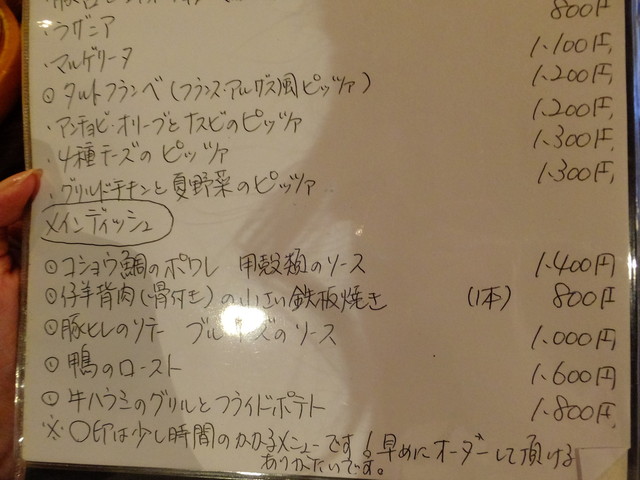 800円
・ラザニア 1.100円
・マルゲリータ 1.200円
◎タルトフランベ(フランス・アルザス風ピッツァ) 1.200円
・アンチョビ・オリーブとナスビのピッツァ 1.300円
・4種チーズのピッツァ 1.300円
・グリルドチキンと夏野菜のピッツァ
メインディッシュ
◎コショウ鯛のポワレ 甲殻類のソース 1.400円
◎仔羊背肉(骨付き)の小さい鉄板焼き (1本) 800円
◎豚ヒレのソテー ブルーチーズのソース 1.000円
◎鴨のロースト 1.600円
◎牛ハラミのグリルとフライドポテト 1.800円
※◯印は少し時間のかかるメニューです。早めにオーダーして頂ける
ありがたいです。